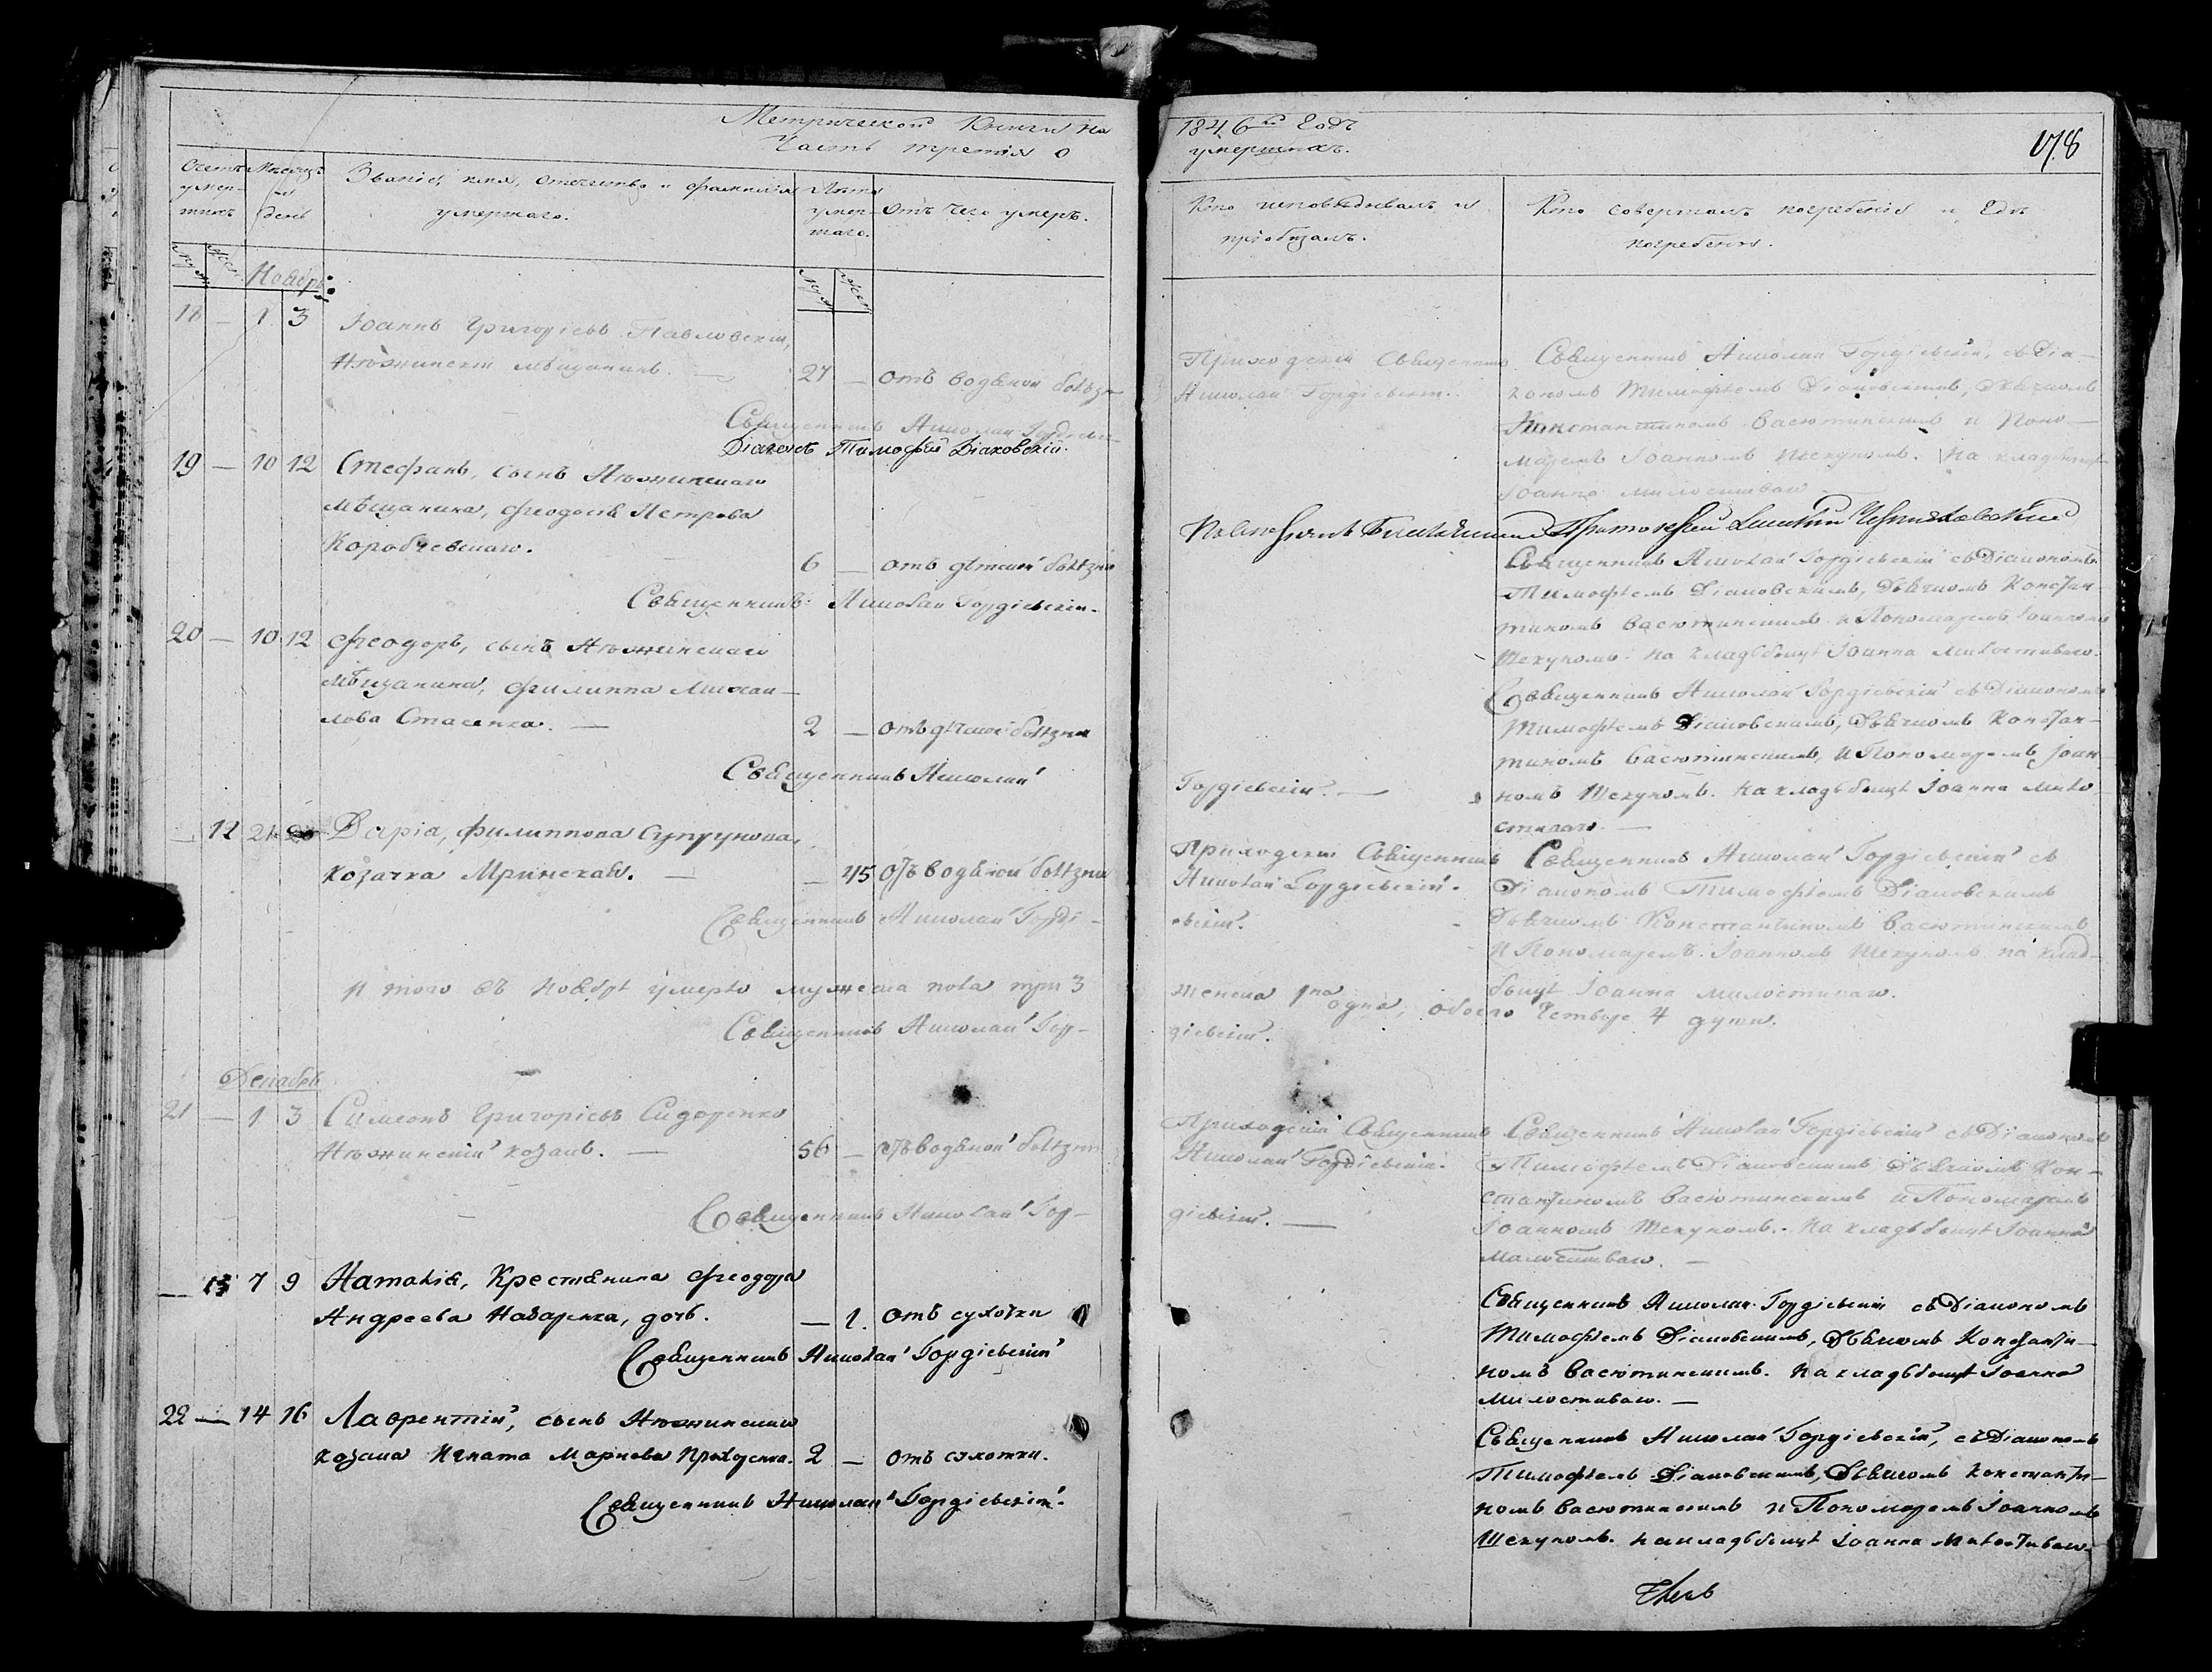 Метрической Книги на
Часть третія о
1846го Годъ
умершихъ.
178
Счетъ умер-шихъ
Мѣсяцъ и день
Званіе, имя, отечество и фамилія
умершаго.
Лѣта умер-шаго.
Отъ чего умеръ.
Кто исповѣдывалъ и
пріобщалъ.
Кто совершалъ погребеніе и гдѣ
погребены.
Ноябрь
18 — 1 3 Іоаннъ Григоріевъ Павловскій,
Нѣжинскій мѣщанинъ. — 27 — отъ водяной болѣзни
Священникъ Николай
Діаконъ Тимофей Діаковскій.
Приходскій Священникъ
Николай Гордіевскій.
Священникъ Николай Гордіевскій, съ Діа-
кономъ Тимофѣемъ Діаковскимъ, Дьячкомъ
Константиномъ Васютинскимъ и Поно-
маремъ Іоанномъ Шекуномъ. На кладбищѣ
Іоанна милостиваго
19 — 10 12 Стефанъ, сынъ Нѣжинскаго
мѣщанина, Феодосія Петрова
Коробчевскаго. 6 — отъ дѣтской болѣзни
Священникъ Николай Гордіевскій.
Протоіерей
Священникъ Николай Гордіевскій съ Діакономъ
Тимофѣемъ Діаковскимъ, Дьячкомъ Констан-
тиномъ Васютинскимъ и Пономаремъ Іоанномъ
Шекуномъ. На кладбищѣ Іоанна Милостиваго.
20 — 10 12 Феодоръ, сынъ Нѣжинскаго
мѣщанина, Филиппа Михаи-
лова Стасенка. — 2 — отъ дѣтской болѣзни
Священникъ Николай
Гордіевскій. —
Священникъ Николай Гордіевскій съ Діакономъ
Тимофѣемъ Діаковскимъ, Дьячкомъ Констан-
тиномъ Васютинскимъ, и Пономаремъ Іоан-
номъ Шекуномъ. На кладбищѣ Іоанна Мило-
стиваго. —
— 12 21 Дарія, Филиппова Супрунова,
козачка Мринская. — — 45 отъ водяной болѣзни
Священникъ Николай Горді-
евскій.
Приходскій Священникъ
Николай Гордіевскій.
Священникъ Николай Гордіевскій съ
Діакономъ Тимофѣемъ Діаковскимъ
Дьячкомъ Константиномъ Васютинскимъ
и Пономаремъ Іоанномъ Шекуномъ на клад-
бищѣ Іоанна милостиваго.
И того въ Ноябрѣ умерло мужеска пола три 3
женска 1на одна, обоего Четверо 4 души.
Священникъ Николай Гор-
діевскій.
Декабрь
21 — 1 3 Симеонъ Григорьевъ Сидоренко
Нѣжинскій козакъ. — 56 — отъ водяной болѣзни
Священникъ Николай Гор-
діевскій. —
Приходскій Священникъ
Николай Гордіевскій.
Священникъ Николай Гордіевскій съ Діакономъ
Тимофѣемъ Діаковскимъ Дьячкомъ Кон-
стантиномъ Васютинскимъ и Пономаремъ
Іоанномъ Шекуномъ. На кладбищѣ Іоанна
Милостиваго. —
— 13 7 9 Наталія, Крестянина Феодора
Андреева Назаренка, дочь. — 1. отъ сухотки
Священникъ Николай Гордіевскій
Священникъ Николай Гордіевскій съ Діакономъ
Тимофѣемъ Діаковскимъ, Дьячкомъ Константи-
номъ Васютинскимъ. На кладбищѣ Іоанна
Милостиваго. —
22 — 14 16 Лаврентій, сынъ Нѣжинскаго
козака Игната Маркова 2 — отъ сухотки.
Священникъ Николай Гордіевскій.
Священникъ Николай Гордіевскій, съ Діакономъ
Тимофѣемъ Діаковскимъ, Дьячкомъ Константи-
номъ Васютинскимъ и Пономаремъ Іоанномъ
Шекуномъ. На кладбищѣ Іоанна Милостиваго.